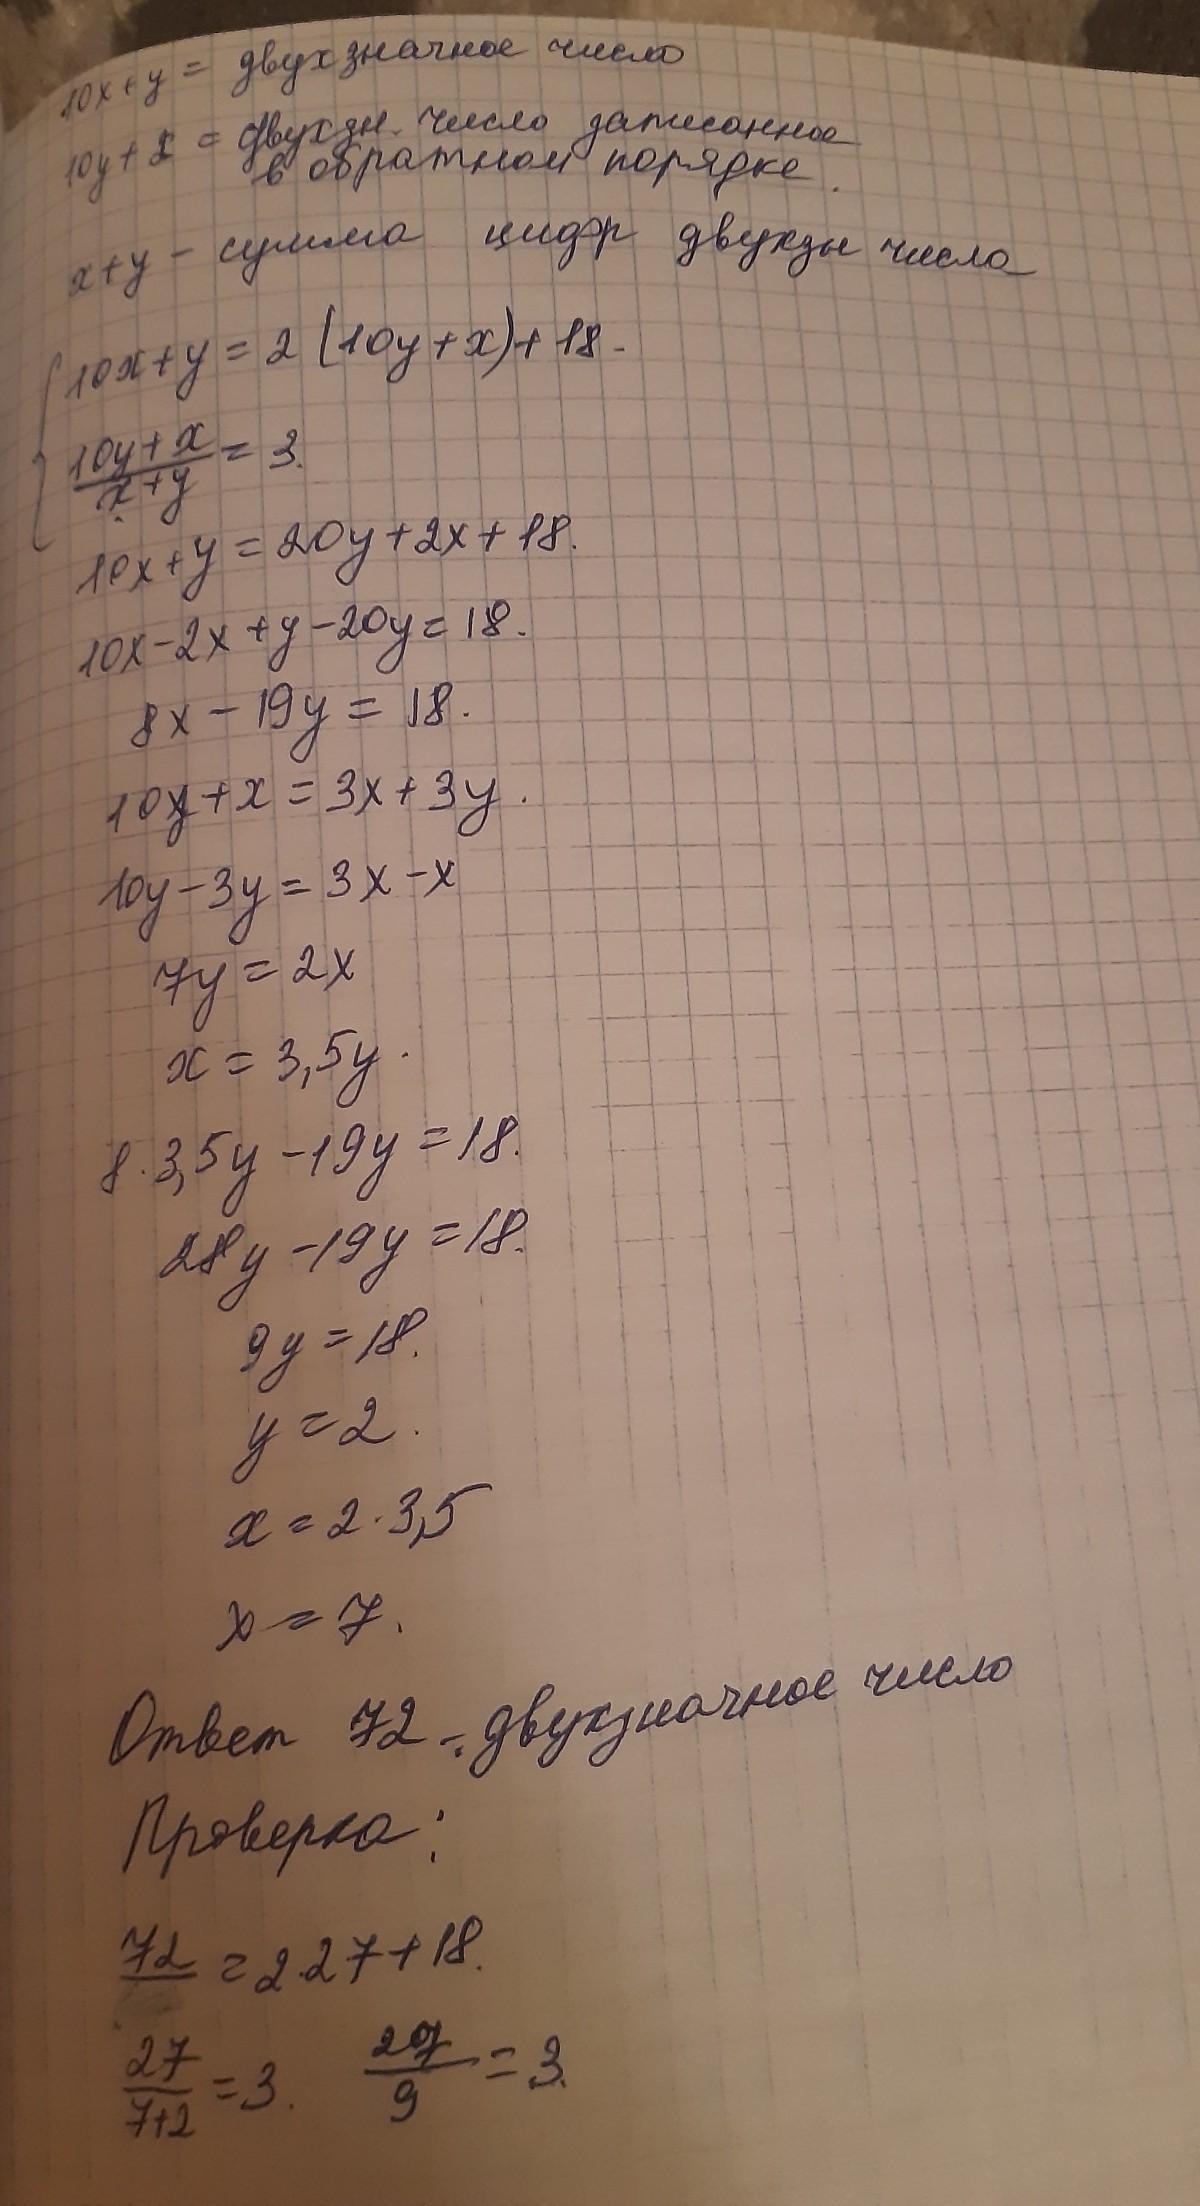 10x+y = двухзначное число
10y+x = двухзн. число записанное
в обратном порядке.
x+y – сумма цифр двухзн числа
10x+y = 2(10y+x)+18.
10y+x
x+y = 3.
10x+y = 20y+2x+18.
10x-2x+y-20y=18.
8x-19y=18.
10y+x=3x+3y.
10y-3y=3x-x
7y=2x
x=3,5y.
8·3,5y-19y=18.
28y-19y=18.
9y=18.
y=2.
x=2·3,5
x=7.
Ответ 72 - двухзначное число
Проверка:
72 = 2·27+18.
27 27
7+2 =3. 9 =3.